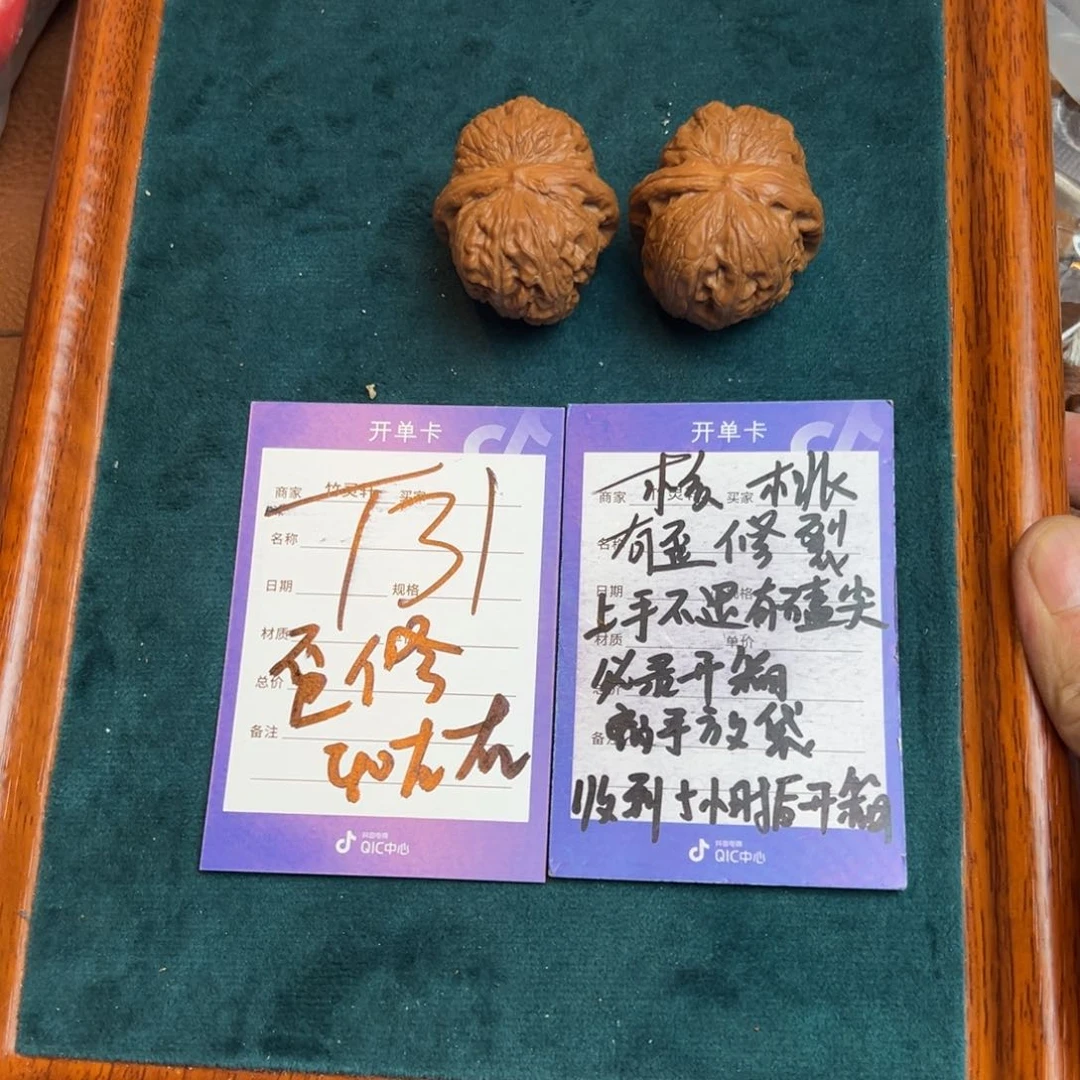 开单卡
商家 买家
名称
日期 规格
材质
总价
备注
T31
歪修
40左右
抖音电商
QIC中心
开单卡
商家 买家
名称
日期 规格
材质 单价
总价
备注
核桃
有歪修裂
上手不退有磕尖
必录开箱
到手放袋
收到 小时后开箱
抖音电商
QIC中心